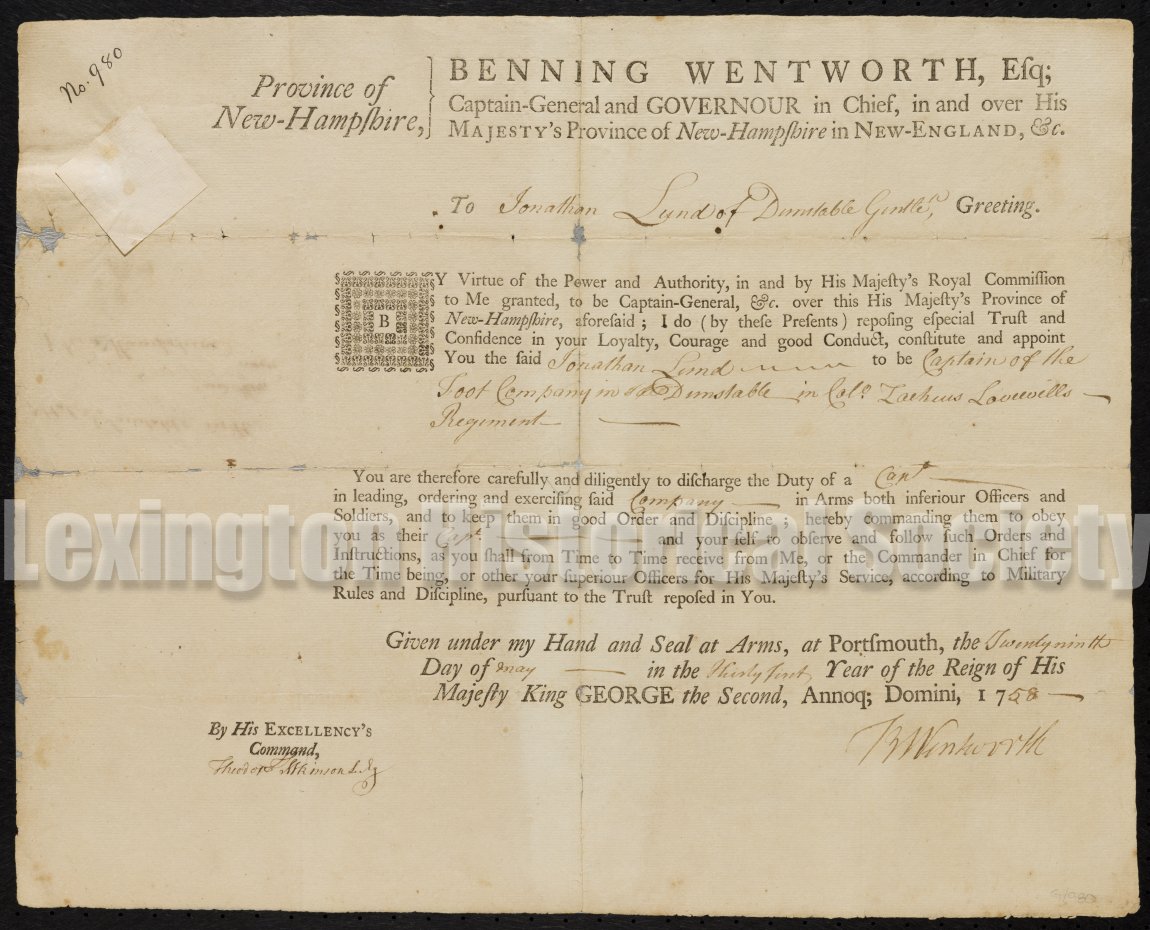 No. 980
Province of
New-Hampſhire,
BENNING WENTWORTH, Eſq;
Captain-General and GOVERNOUR in Chief, in and over His
MAJESTY'S Province of New-Hampſhire in NEW-ENGLAND, &c.
To Jonathan Lund of Dunstable Gentlen, Greeting.
BY Virtue of the Power and Authority, in and by His Majeſty's Royal Commiſſion
to Me granted, to be Captain-General, &c. over this His Majeſty's Province of
New-Hampſhire, aforeſaid ; I do (by theſe Preſents) repoſing eſpecial Truſt and
Confidence in your Loyalty, Courage and good Conduct, conſtitute and appoint
You the ſaid Jonathan Lund to be Captain of the
Foot Company in Dunstable in Colo. Zacheus Lovewells
Regiment
You are therefore carefully and diligently to diſcharge the Duty of a Capt
in leading, ordering and exerciſing ſaid Company in Arms both inferiour Officers and
Soldiers, and to keep them in good Order and Diſcipline ; hereby commanding them to obey
you as their Capt. and your ſelf to obſerve and follow ſuch Orders and
Inſtructions, as you ſhall from Time to Time receive from Me, or the Commander in Chief for
the Time being, or other your ſuperiour Officers for His Majeſty's Service, according to Military
Rules and Diſcipline, purſuant to the Truſt repoſed in You.
Lexington Historical Society
Given under my Hand and Seal at Arms, at Portſmouth, the Twenty ninth
Day of may in the thirty first Year of the Reign of His
Majeſty King GEORGE the Second, Annoq; Domini, 1758
By His EXCELLENCY'S
Command,
Theodor Atkinson
BWentworth